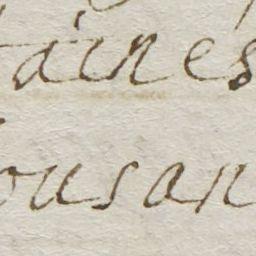 taines
ousan